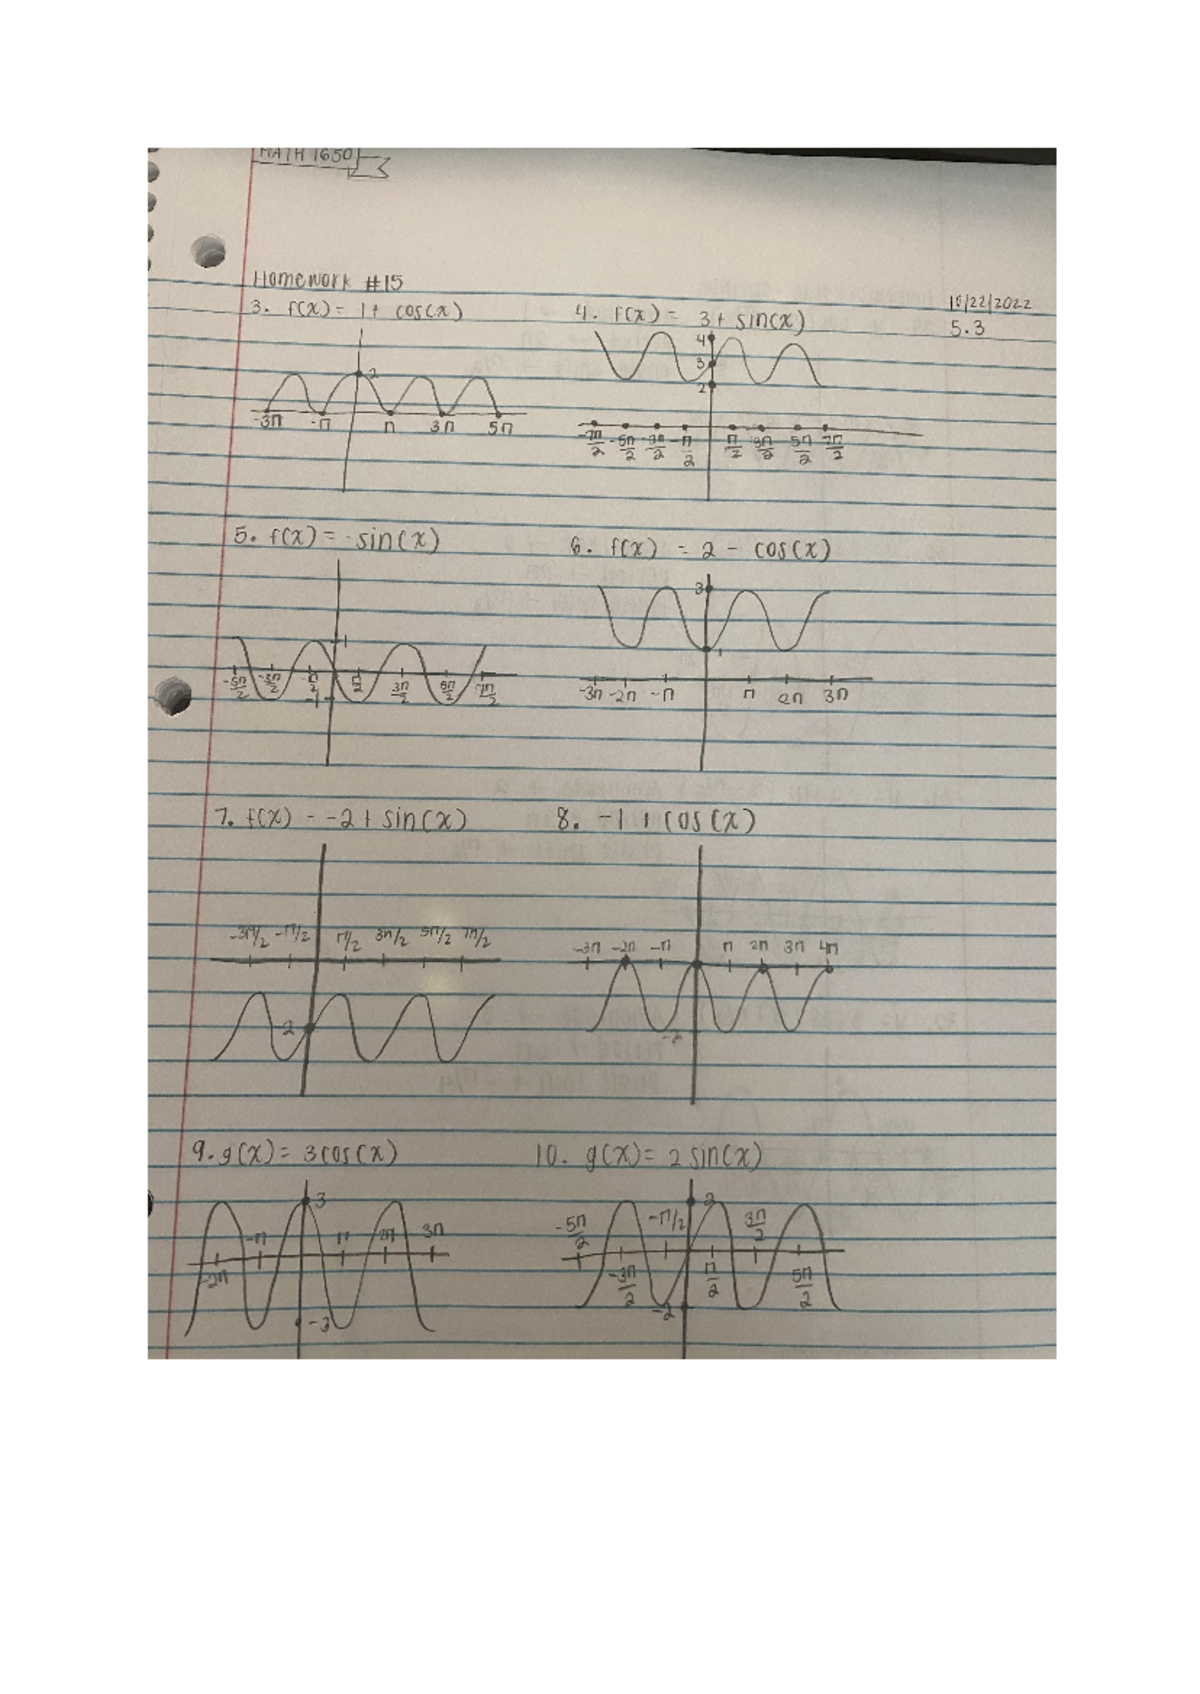 MATH 1650
Homework #15
10/22/2022
5.3
3. f(x) = 1 + cos(x)
2
-3π -π π 3π 5π
4. f(x) = 3 + sin(x)
4
3
2
-7π/2 -5π/2 -3π/2 -π/2 π/2 3π/2 5π/2 7π/2
5. f(x) = -sin(x)
1
-5π/2 -3π/2 -π/2 π/2 3π/2 5π/2 7π/2
-1
6. f(x) = 2 - cos(x)
3
1
-3π -2π -π π 2π 3π
7. f(x) = -2 + sin(x)
-3π/2 -π/2 π/2 3π/2 5π/2 7π/2
-2
8. -1 + cos(x)
-3π -2π -π π 2π 3π 4π
-2
9. g(x) = 3cos(x)
3
-2π -π π 2π 3π
-3
10. g(x) = 2 sin(x)
2
-5π/2 -3π/2 -π/2 π/2 3π/2 5π/2
-2